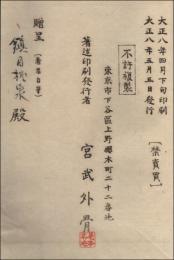 大正八年四月下旬印刷
大正八年五月五日發行
[禁賣買]
不許複製
東京市下谷區上野櫻木町二十二番地
著述印刷發行者 宮武外骨
贈呈(著者自筆)
鎮目桃泉殿